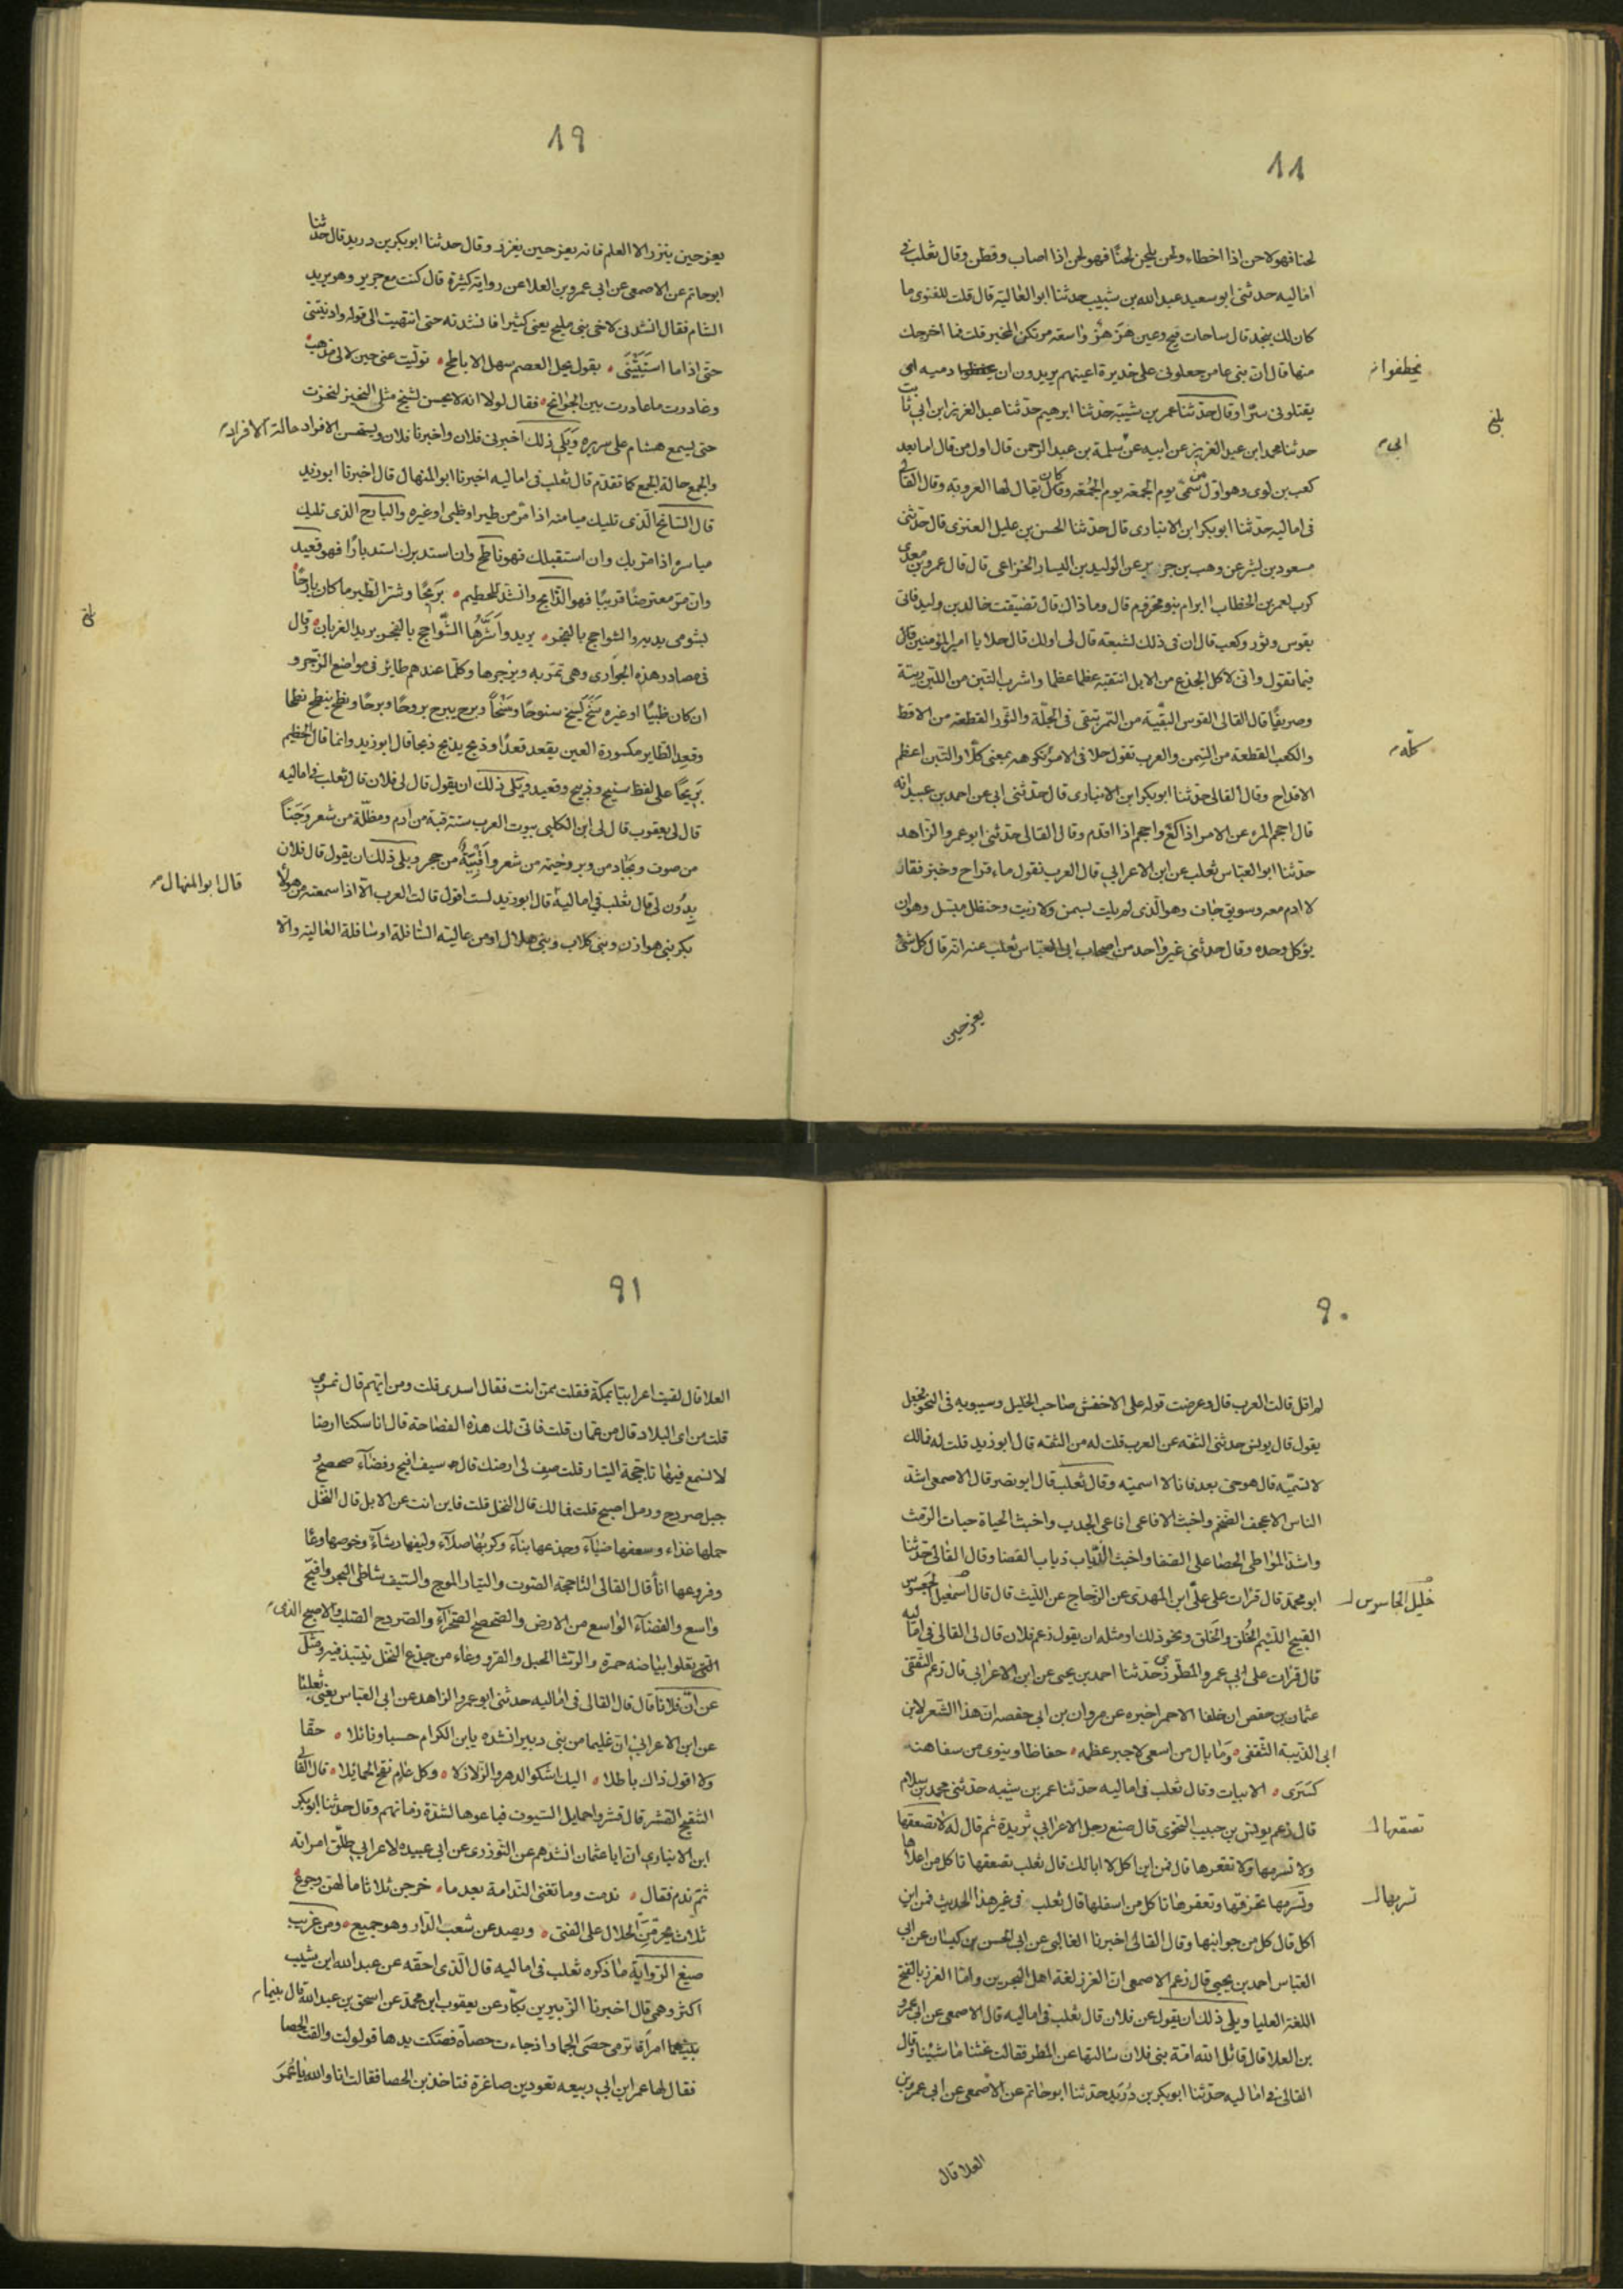 ٨٨
لحنا فهو لاحن اذا اخطاء ولحن يلحن لحنًا فهو لحن اذا اصاب وفطن وقال ثعلب في
اماليه حدثنى ابو سعيد عبد الله بن شبيب حدثنا ابو العالية قال قلت للغنوى ما
كان لك بنجد قال ساحات فيح وعين هزهز واسعة مرتكض المخبر قلت فما اخرجك
منها قال ان بنى عامر جعلونى على خديرة اعينهم يريدون ان دميه اى
يخطفوا
يقتلونى سرًّا وقال حدثنا عمر بن شيبة حدثنا ابرهيم حدثنا عبد العزيز ابن ابى ثابت
حدثنا محمد ابن عبد العزيز عن ابيه عن سلمة بن عبد الرحمن قال اول من قال اما بعد
ابى
بلغ
كعب بن لوى وهو اول من سمّى يوم الجمعة يوم الجمعة وكان يقال لها العروبة وقال القالى
فى اماليه حدثنا ابوبكر ابن الانبارى قال حدثنا الحسن بن عليل العنزى قال حدثنى
مسعود بن بشر عن وهب بن جرير عن الوليد بن اليسار الخزاعى قال قال عمرو بن معدى
كرب لعمر بن الخطاب ابرام بنو مخزوم قال وما ذاك قال تضيّفت خالد بن وليد فاتى
بقوس وثور وكعب قال ان فى ذلك لشبعة قال لى اولك قال حلا يا امير المؤمنين قال
فيما تقول وانى لاكل الجذع من الابل انتقيه عظما عظما واشرب التبن من اللبن ريثة
وصريفًا قال القالى القوس البقيّة من التمر تبقى فى الجلّة والثور القطعة من الاقط
والكعب القطعة من السمن والعرب تقول حلا فى الامر تكرهه بمعنى كلّا والتبن اعظم
كلّه
الاقداح وقال القالى حدثنا ابوبكر ابن الانبارى قال حدثنى ابى عن احمد بن عبيد انه
قال احجم المرء عن الامر اذا كعّ واجحم اذا اقدم وقال القالى حدثنى ابو عمر والزاهد
حدثنا ابو العباس ثعلب عن ابن الاعرابى قال العرب تقول ماء قراح وخبز فقار
لا ادم معه وسويق جاف وهو الذى لم يلت بسمن ولا زيت وحنظل مبسل وهو ان
يؤكل وحده وقال حدثنى غير واحد من اصحاب ابى العباس ثعلب عنه انه قال كل شئ
يعز حين
٨٩
يعز حين ينزر الا العلم فانه يعز حين يغزر وقال حدثنا ابوبكر بن دريد قال حدثنا
ابو حاتم عن الاصمعى عن ابى عمرو بن العلا عن رواية كثيرة قال كنت مع جرير وهو يريد
الشام فقال انشدنى لاخى بنى مليح يعنى كثيرا فانشدته حتى انتهيت الى قوله وادنيتنى
حتى اذا ما استبيتنى ۰ بقول يحل العصم سهل الاباطح ۰ توليت عنى حين لا لى مذهب
وغادرت ما غادرت بين الجوانح ۰ فقال لولا انه لا يحسن لشيخ مثلى النخير لنخرت
حتى يسمع هشام على سريره ويلى ذلك اخبرنى فلان واخبرنا فلان ويستحسن الافراد حالة الافراد
والجمع حالة الجمع كما تقدّم قال ثعلب فى اماليه اخبرنا ابو المنهال قال اخبرنا ابو زيد
قال السانح الذى تليك ميامنه اذا مرّ من طير او ظبى او غيره والبارح الذى تليك
مياسره اذا مرّ بك وان استقبلك فهو ناطح وان استدبرك استدبارًا فهو قعيد
وان مرّ معترضًا قريبًا فهو الذّابح وانشد للحطيم ۰ بَرِيحًا وشرّ الطير ما كان بارحًا
بشومى يديه والشواحج بالفجر ۰ يريد واشرّها الشواحج بالفجر يريد الغربان ۰ وقال
بلغ
فى مصادر هذه الجوارى وهى تمرّ به ويزجرها وكلما عندهم طائر فى مواضع الزجر و
ان كان ظبيًا او غيره سَنَحَ يَسنح سنوحًا وسَنْحًا وبرح يبرح بروحًا وبرحًا ونطح ينطح نطحا
وقعد الطاير مكسورة العين يقعد قعدًا وذبح يذبح ذبحا قال ابو زيد وانما قال الحطيم
بَرِيحًا على لفظ سنيح وذبيح وقعيد ويلى ذلك ان يقول قال لى فلان قال ثعلب فى اماليه
قال لى يعقوب قال لى ابن الكلبى بيوت العرب ستة قبة من ادم ومظلّة من شعر وخباء
من صوف وبجاد من وبر وخيمة من شجر وأُقْنَة من حجر ويلى ذلك ان يقول قال فلان
بدون لى قال ثعلب فى اماليه قال ابو زيد لست اقول قالت العرب الا اذا سمعته من هؤلا
قال ابو المنهال
بكر بنى هوازن وبنى كلاب وبنى هلال او من عالية السّافلة او سافلة العالية والا
٩٠
لم اقل قالت العرب قال وعرضت قوله على الاخفش صاحب الخليل وسيبويه فى النحو فجعل
يقول قال يونس حدثنى الثقة عن العرب قلت له من الثقة قال ابو زيد قلت له فما لك
لا تسمّيه قال هو حىّ بعد فانا لا اسميه وقال ثعلب قال ابو نصر قال الاصمعى اشد
الناس الاعجف الضخم واخبث الافاعى افاعى الجدب واخبث الحياة حيات الرمث
واشد المواطى الحصا على الصفا واخبث الذئاب ذياب الغضا وقال القالى حدثنا
ابو محمد قال قرات على علىّ ابن المهدى عن الزجاج عن الليث قال قال
خليل الجاسوس
القبيح اللئيم الخُلق والخَلق ونحو ذلك او مثله ان يقول زعم فلان قال لى القالى فى اماليه
قال قرات على ابى عمر والمطرّزى حدثنا احمد بن يحيى عن ابن الاعرابى قال زعم الثقفى
عثمان بن حفص ان خلفا الاحمر اخبره عن مروان بن ابى حفصه ان هذا الشعر لابن
ابى الذيبة الثقفى ۰ وما بال من اسعى لاجبر عظمه ۰ حفاظا وينوى من سفاهته
كسرى ۰ الابيات وقال ثعلب فى اماليه حدثنا عمر بن شيبه حدثنى محمد بن سلام
قال زعم يونس بن حبيب النحوى قال صنع رجل الاعرابى ثريدة ثم قال له لا تصعقها
تصقعها
ولا تشرمها ولا تقعرها قال فمن اين اكل لا ابا لك قال ثعلب تصعقها تاكل من اعلاها
وتشرمها تخرقها وتقعرها تاكل من اسفلها قال ثعلب فى غير هذا الحديث فمن اين
اكل قال كل من جوانبها وقال القالى اخبرنا الغالبى عن ابى الحسن بن كيسان عن ابى
العباس احمد بن يحيى قال زعم الاصمعى ان الغرز لغة اهل البحرين وامّا الغرز بالفتح
اللغة العليا ويلى ذلك ان يقول عن فلان قال ثعلب فى اماليه قال الاصمعى عن ابى عمرو
بن العلا قال قاتل الله امة بنى فلان سالتها عن المطر فقالت غثنا ما شيئنا وقال
القالى فى اماليه حدثنا ابوبكر بن دُرَيد حدثنا ابو حاتم عن الاصمعى عن ابى عمرو بن
العلا قال
٩١
العلا قال لقيت اعرابيّا بمكة فقلت ممّن انت فقال اسدى قلت ومن ايهم قال نمرى
قلت من اى البلاد قال من عمان قلت فانّى لك هذه الفصاحة قال انا سكنا ارضا
لا نسمع فيها ناجخة التيّار قلت صِف لى ارضك قال سيف افيح وفضآء صحصح و
جبل صردح ورمل اصبح قلت فما لك قال النخل قلت فاين انت عن الابل قال النخل
حملها غذاء وسعفها ضيآء وجذعها بنآء وكربها صلآء وليفها رشآء وخوصها وعا
وفروعها انا قال القالى النّاجخة الصّوت والتيار الموج والسّيف شاطى البحر وافيح
واسع والفضآء الواسع من الارض والصحصح الصّحرآء والصردح الصّلب والاصبح الذى
التى يعلوا بياضه حمرة والرشا الحبل والقرو وعاء من جذع النخل ينتبذ فيه ومثل
عن انّ فلانا قال قال القالى فى اماليه حدثنى ابو عمر والزاهد عن ابى العباس يعنى ثعلبًا
عن ابن الاعرابىّ ان غليما من بنى دبير انشده يابن الكرام حسبا ونائلا ۰ حقّا
ولا اقول ذاك باطلا ۰ اليك اشكو الدهر والزّلازلا ۰ وكل عام نقّح الحمائلا ۰ قال القالى
التنقيح القشر قال قشروا حمايل السّيوف فباعوها لشدّة زمانهم وقال حدثنا ابوبكر
ابن الانبارى ان ابا عثمان انشدهم عن التوزدى عن ابى عبيده لاعرابى طلّق امراته
ثمّ ندم فقال ۰ ندمت وما تغنى الندامة بعدما ۰ خرجن ثلاث ما لهن رجوع
ثلاث يحرّمن الحلال على الفتى ۰ ويصدعن شعب الدّار وهو جميع ۰ ومن غريب
صيغ الرّواية ما ذكره ثعلب فى اماليه قال الّذى احقه عن عبد الله ابن شبيب
اكثر وهمى قال اخبرنا الزّبير بن بكّار عن يعقوب ابن محمد عن اسحق بن عبد الله قال بينما
امراة ترمى حصى الجمار اذ جاءت حصاة فصكت يدها فولولت والقت الحصا
فقال لها عمر ابن ابى ربيعه تعودين صاغرة فتاخذين الحصا فقالت انا والله يا عُمَر